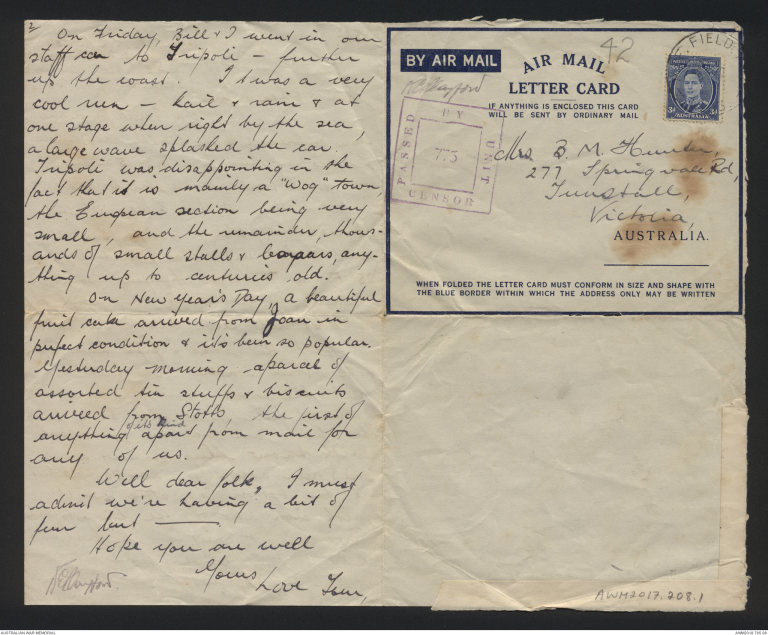 2
On Friday, Bill & I went in our
staff car to Tripoli – further
up the coast. It was a very
cool run – hail & rain & at
one stage when right by the sea,
a large wave splashed the car.
Tripoli was disappointing in the
fact that it is mainly a "Wog" town,
the European section being very
small, and the remainder, thous-
ands of small stalls & bazaars, any-
thing up to centuries old.
On New Year's Day, a beautiful
fruit cake arrived from Joan in
perfect condition & it's been so popular.
Yesterday morning a parcel of
assorted tin stuffs & biscuits
arrived from Stotts, the first of
of its kind
anything apart from mail for
any of us.
Well dear folk, I must
admit we're having a bit of
fun but ———
Hope you are well
Yours
Love Tom,
BY AIR MAIL
AIR MAIL
LETTER CARD
IF ANYTHING IS ENCLOSED THIS CARD
WILL BE SENT BY ORDINARY MAIL
42
FIELD
3d 3d
AUSTRALIA
PASSED BY
775
UNIT
CENSOR
Mrs. B. M. Hunter,
277 Springvale Rd,
Tunstall,
Victoria,
AUSTRALIA.
WHEN FOLDED THE LETTER CARD MUST CONFORM IN SIZE AND SHAPE WITH
THE BLUE BORDER WITHIN WHICH THE ADDRESS ONLY MAY BE WRITTEN
AWM2017.208.1
AUSTRALIAN WAR MEMORIAL